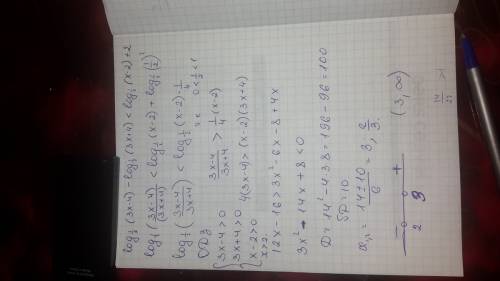 log½ (3x-4) - log½ (3x+4) < log½ (x-2) + 2
log½ ((3x-4)/(3x+4)) < log½ (x-2) + log½ (½)²
log½ ((3x-4)/(3x+4)) < log½ (x-2)·¼
т.к. 0<½<1
ОДЗ (3x-4)/(3x+4) > ¼(x-2)
{3x-4>0
3x+4>0 4(3x-4)>(x-2)(3x+4)
x-2>0
x>2. 12x-16>3x²-6x-8+4x
3x²-14x+8<0
D=14²-4·3·8=196-96=100
√D=10
x₁,₂ = (14±10)/6 = 3; 2/3.
- +
2 3
(3, ∞)